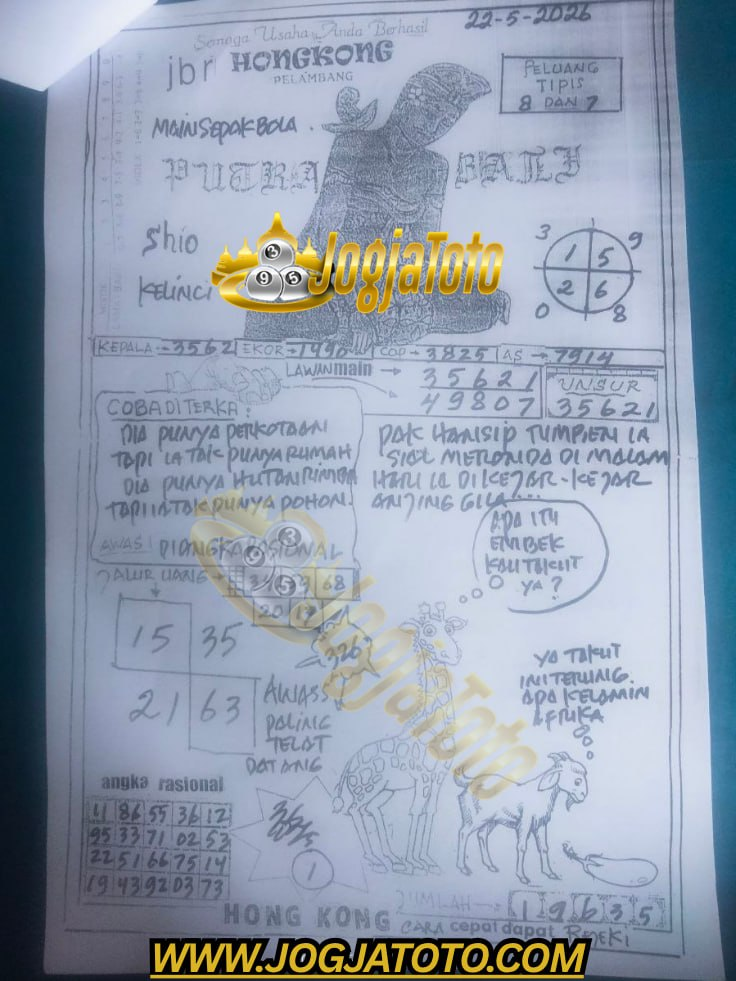 Semoga Usaha Anda Berhasil
22-5-2026
jbr HONGKONG
PELAMBANG
PELUANG
TIPIS
8 DAN 7
MAIN SEPAK BOLA .
PUTRA BALI
Shio
KELINCI
JogjaToto
3 9 5
3 9
1 5
2 6
0 8
KEPALA → 3562 EKOR → 1490 COP → 3825 AS → 7914
LAWAN main → 35621
49807
UNSUR
35621
COBA DITERKA :
DIA PUNYA PERKOTAAN
TAPI IA TAK PUNYA RUMAH
DIA PUNYA HUTAN RIMBA
TAPI IA TAK PUNYA POHON.
AWAS! DIANGKA RASIONAL
PAK HANSIP TUMBEN IA
SIAL MERONDA DI MALAM
HARI IA DI KEJAR-KEJAR
ANJING GILA...
APA ITU
EMBEK
KAU TAKUT
YA ?
JALUR UANG →
68
20 17
326
15 35
21 63
AWASS
PALING
TELAT
DATANG
YA TAKUT
INI TERUNG.
APA KELAMIN
AFRIKA
JogjaToto
angka rasional
11 86 55 36 12
95 33 71 02 53
22 51 66 75 14
19 43 92 03 73
1
JUMLAH → 1 9 6 3 5
HONG KONG CARA cepat dapat REJEKI
WWW.JOGJATOTO.COM